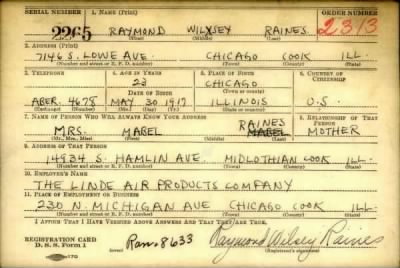 SERIAL NUMBER 1. NAME (Print) ORDER NUMBER
2265 RAYMOND WILXSEY RAINES 2313
(First) (Middle) (Last)
2. ADDRESS (Print)
7146 S. LOWE AVE CHICAGO COOK ILL
(Number and street or R. F. D. number) (Town) (County) (State)
3. TELEPHONE 4. AGE IN YEARS 5. PLACE OF BIRTH 6. COUNTRY OF CITIZENSHIP
23 CHICAGO
DATE OF BIRTH (Town or county)
ABER. 4678 MAY 30 1917 ILLINOIS U.S.
(Exchange) (Number) (Mo.) (Day) (Yr.) (State or country)
7. NAME OF PERSON WHO WILL ALWAYS KNOW YOUR ADDRESS 8. RELATIONSHIP OF THAT PERSON
MRS. MABEL RAINES MABEL MOTHER
(Mr., Mrs., Miss) (First) (Middle) (Last)
9. ADDRESS OF THAT PERSON
14934 S. HAMLIN AVE. MIDLOTHIAN COOK ILL
(Number and street or R. F. D. number) (Town) (County) (State)
10. EMPLOYER'S NAME
THE LINDE AIR PRODUCTS COMPANY
11. PLACE OF EMPLOYMENT OR BUSINESS
230 N. MICHIGAN AVE CHICAGO COOK ILL.
(Number and street or R. F. D. number) (Town) (County) (State)
I AFFIRM THAT I HAVE VERIFIED ABOVE ANSWERS AND THAT THEY ARE TRUE.
REGISTRATION CARD
D. S. S. Form 1
(over) Ran. 8633 Raymond Wilsey Raines
(Registrant's signature)